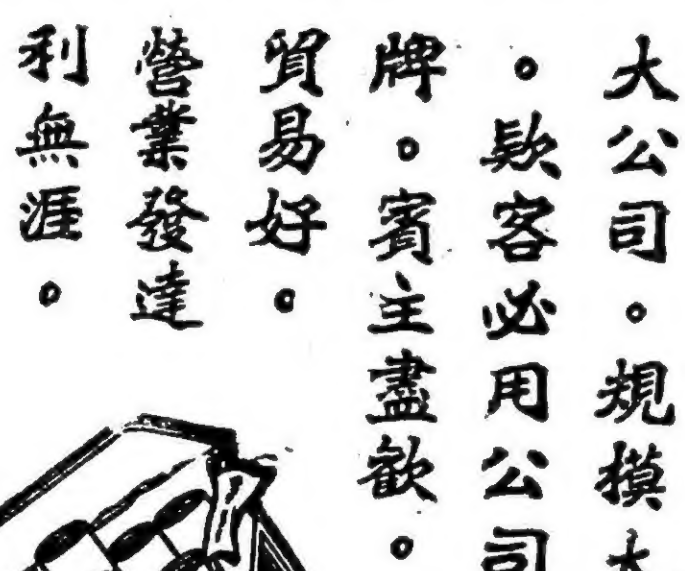 大公司。規模大
。欵客必用公司
牌。賓主盡歡。
貿易好。
營業發達
利無涯。